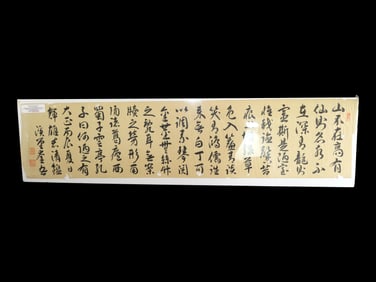 山不在高有
仙則名水不
在深有龍則
靈斯是陋室
惟德馨苔
痕綠草
色入簾青談
笑有鴻儒往
來無白丁可
以調素琴閱
金經無絲竹
之亂耳無案
牘之勞形南
陽諸葛廬西
蜀子雲亭孔
子曰何陋之有
大正丙辰夏日
清鑑